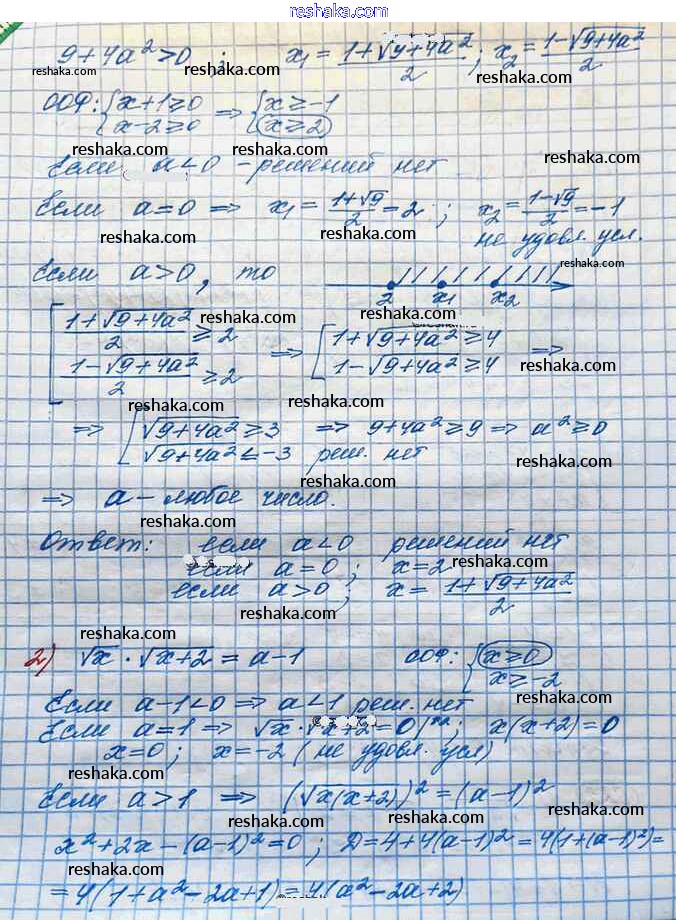 reshaka.com
9+4a²>0 ; x₁ = (1+√(9+4a²))/2 ; x₂ = (1-√(9+4a²))/2
reshaka.com reshaka.com reshaka.com
ООФ: {x+1≥0 ⇒ {x≥-1
x-2≥0 x≥2
reshaka.com reshaka.com reshaka.com
Если a<0 - решений нет
Если a=0 ⇒ x₁ = (1+√9)/2 = 2 ; x₂ = (1-√9)/2 = -1
reshaka.com reshaka.com
не удовл. усл.
reshaka.com
Если a>0, то
2 x₁ x₂
reshaka.com reshaka.com
[(1+√(9+4a²))/2 ≥2 ⇒ [1+√(9+4a²) ≥4 ⇒
(1-√(9+4a²))/2 ≥2 1-√(9+4a²) ≥4
reshaka.com reshaka.com reshaka.com
⇒ [√(9+4a²) ≥3 ⇒ 9+4a²≥9 ⇒ a²≥0
√(9+4a²) ≤-3 реш. нет
reshaka.com reshaka.com reshaka.com
⇒ a - любое число.
reshaka.com
Ответ: если a<0 решений нет
reshaka.com
если a=0 ; x=2
если a>0 ; x = (1+√(9+4a²))/2
reshaka.com reshaka.com
2) √x · √(x+2) = a-1 ООФ: {x≥0
x≥-2
reshaka.com reshaka.com
Если a-1<0 ⇒ a<1 реш. нет
Если a=1 ⇒ √x · √(x+2) = 0 |² ; x(x+2)=0
x=0 ; x=-2 (не удовл. усл)
reshaka.com reshaka.com
Если a>1 ⇒ (√(x(x+2)))² = (a-1)²
reshaka.com reshaka.com
x²+2x-(a-1)²=0 ; D=4+4(a-1)²=4(1+(a-1)²)=
reshaka.com reshaka.com
=4(1+a²-2a+1)=4(a²-2a+2)